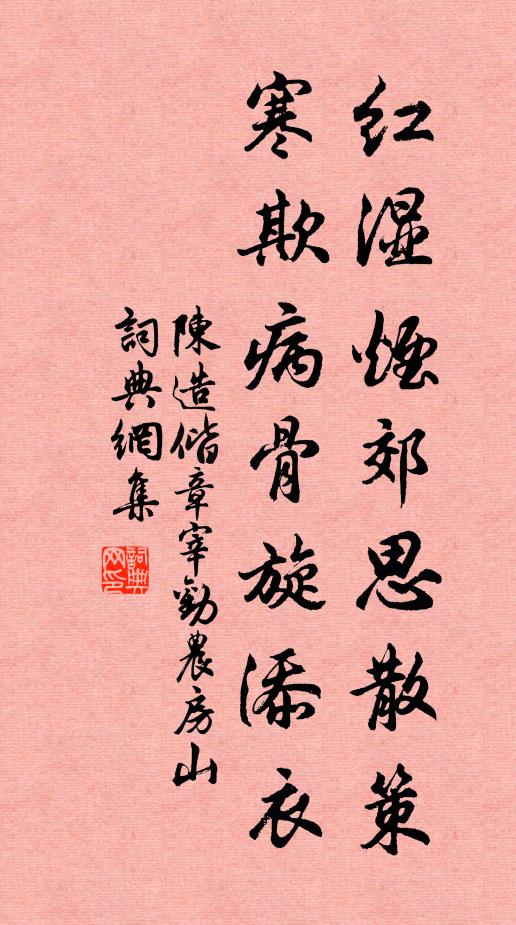 红湿烟郊思散策
寒欺病骨旋添衣
陳造偕章宰勸農房山
詞典網集
詞典网印